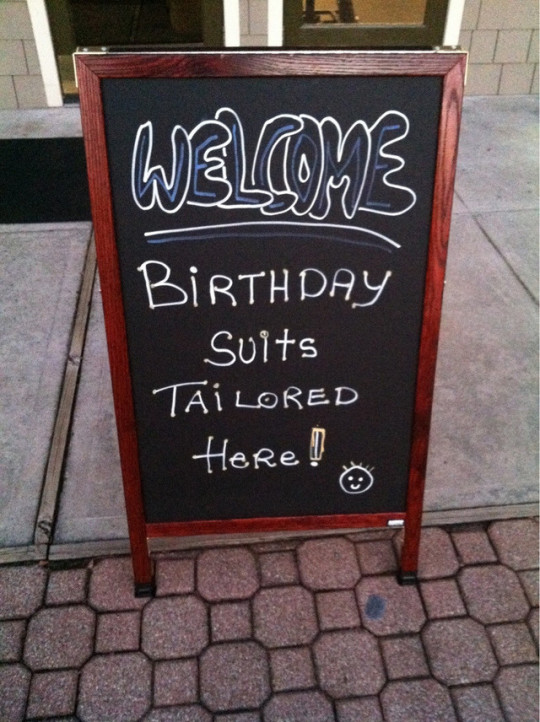 WELCOME
BiRTHDAY
SUits
TAiLORED
HeRe!